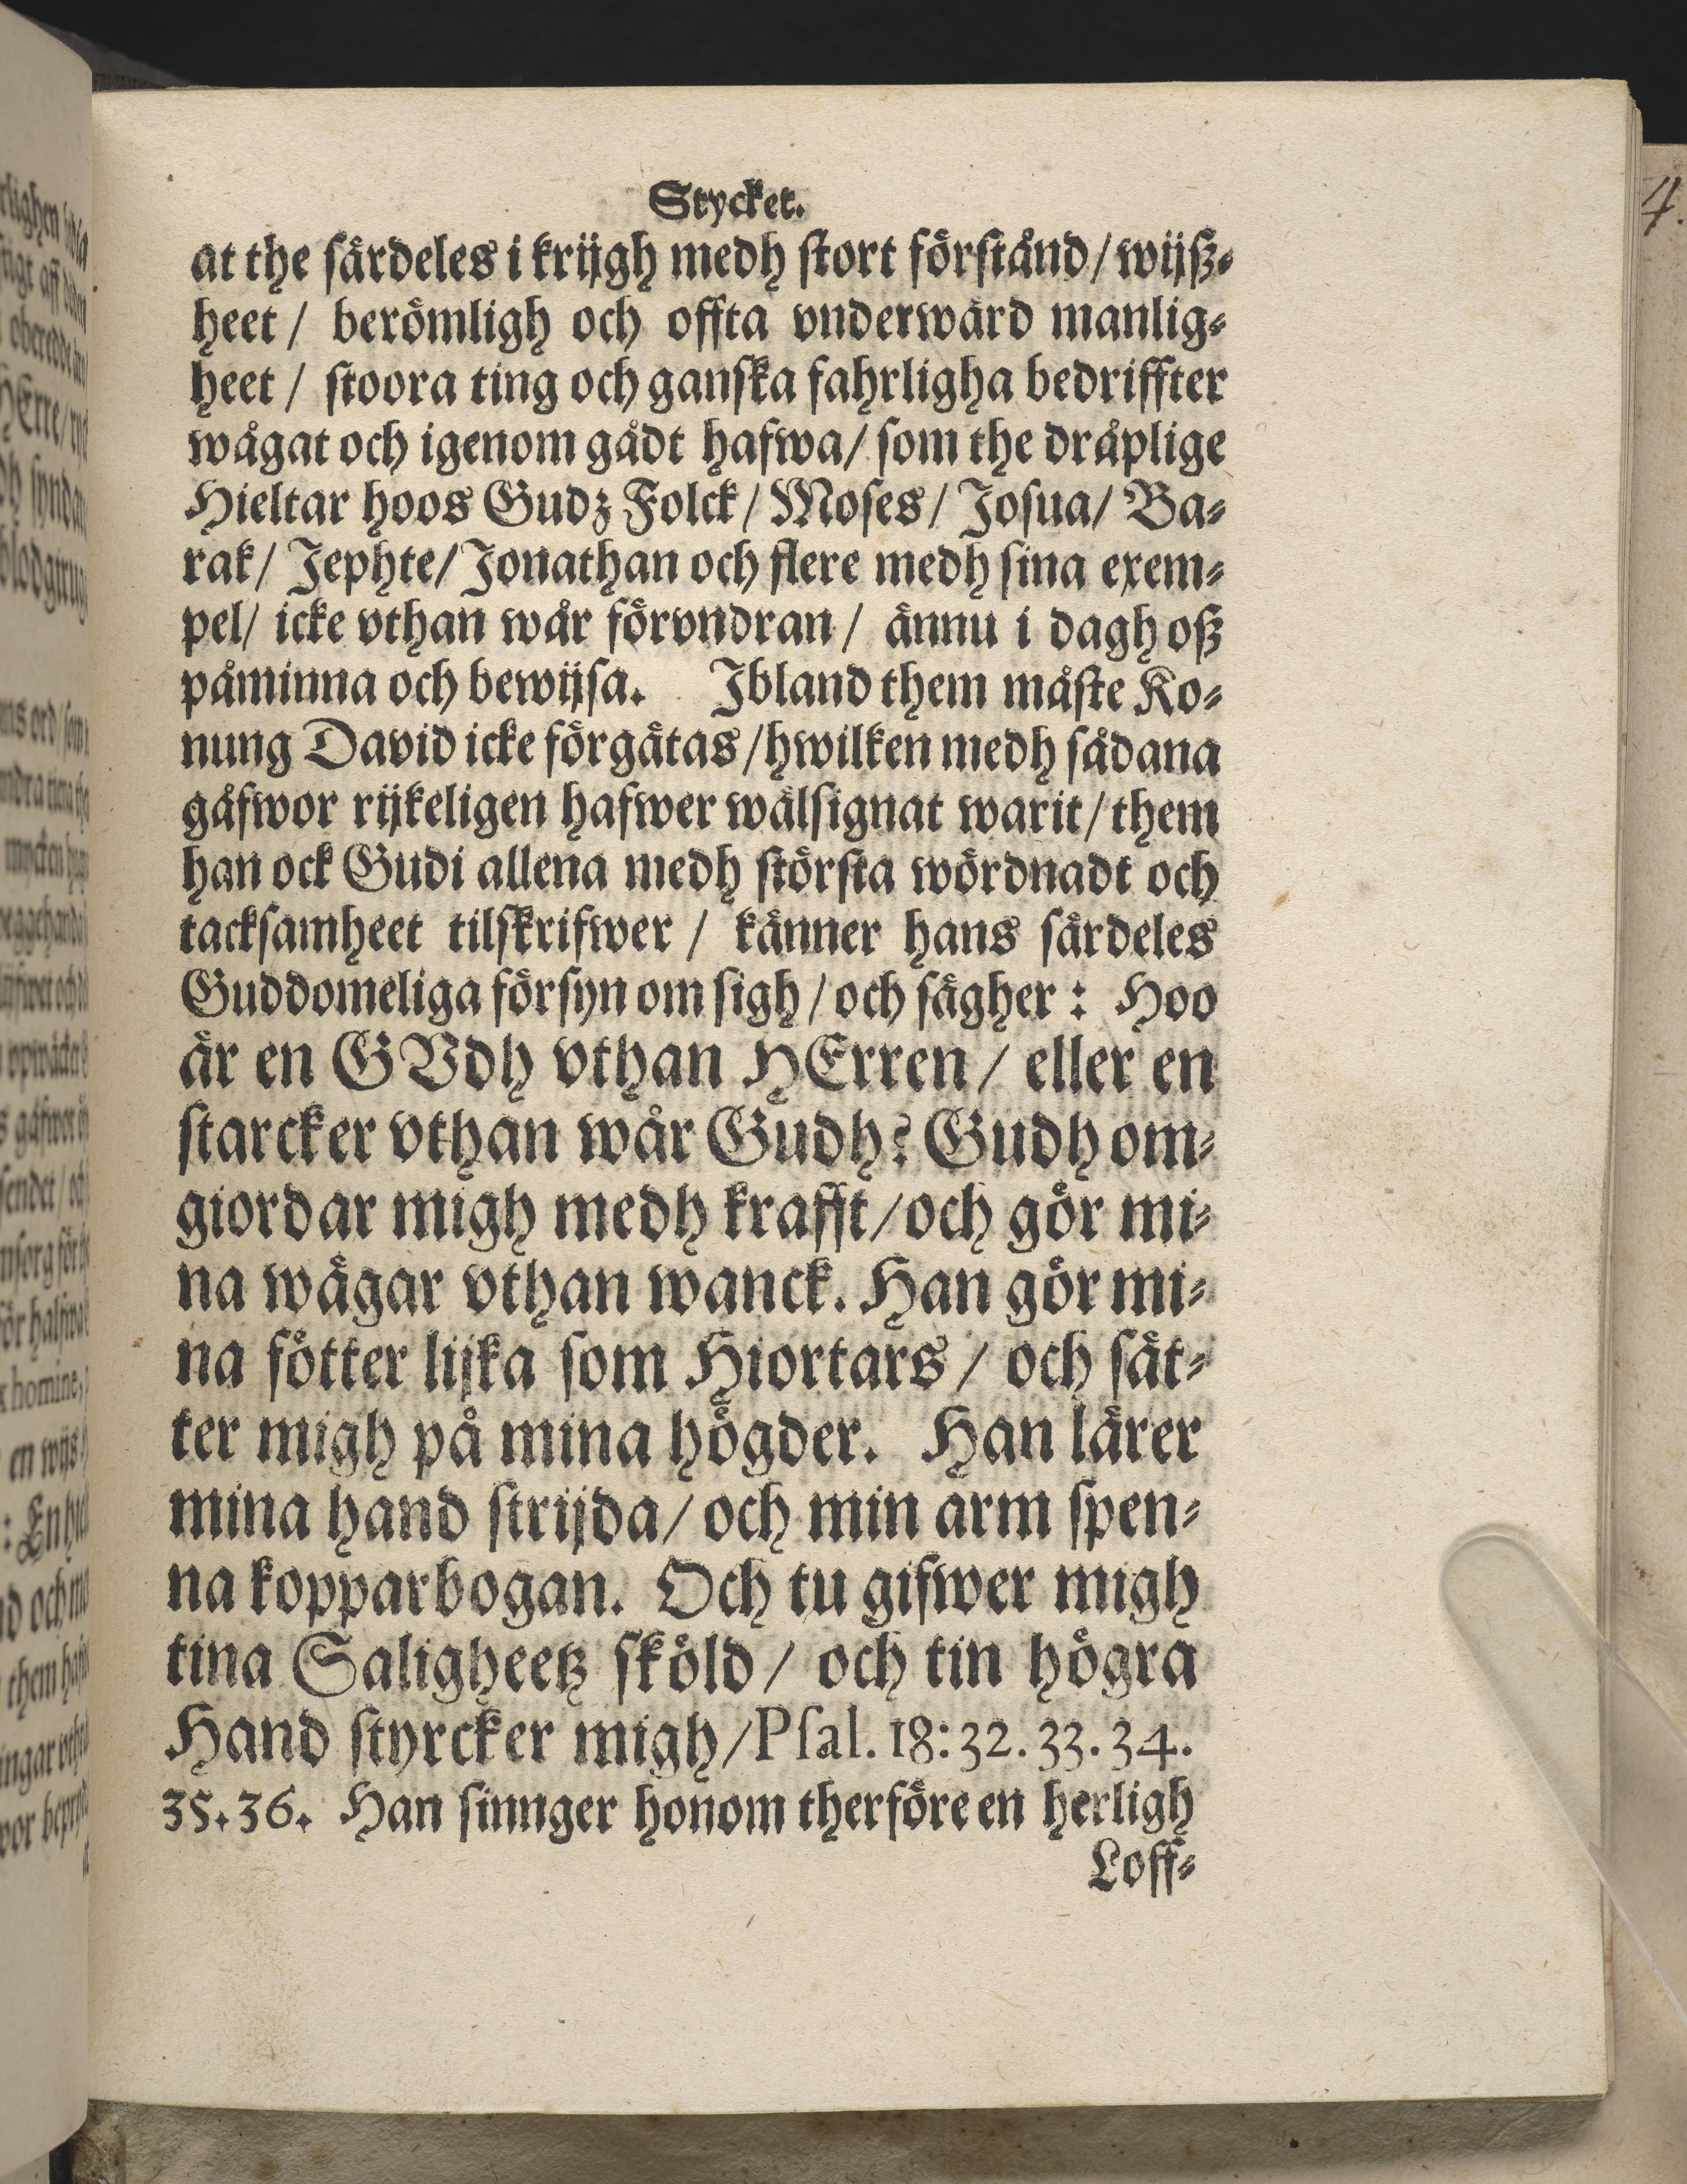 Stycket.
at the särdeles i krijgh medh stort förstånd / wijß⸗
heet / berömligh och offta vnderwärd manlig⸗
heet / stoora ting och ganska fahrligha bedriffter
wågat och igenom gådt hafwa / som the dråplige
Hieltar hoos Gudz Folck / Moses / Josua / Ba⸗
rak / Jephte / Jonathan och flere medh sina exem⸗
pel / icke vthan wår förvndran / ännu i dagh oß
påminna och bewijsa. Jbland them måste Ko⸗
nung David icke förgätas / hwilken medh sådana
gåfwor rijkeligen hafwer wälsignat warit / them
han ock Gudi allena medh största wördnadt och
tacksamheet tilskrifwer / känner hans särdeles
Guddomeliga försyn om sigh / och sägher : Hoo
är en GVdh vthan HErren / eller en
starcker vthan wår Gudh? Gudh om⸗
giordar migh medh krafft / och gör mi⸗
na wägar vthan wanck. Han gör mi⸗
na fötter lijka som Hiortars / och sät⸗
ter migh på mina högder. Han lärer
mina hand strijda / och min arm spen⸗
na kopparbogan. Och tu gifwer migh
tina Saligheetz sköld / och tin högra
Hand styrcker migh / Psal. 18: 32. 33. 34.
35. 36. Han sinnger honom therföre en herligh
Loff⸗
4.